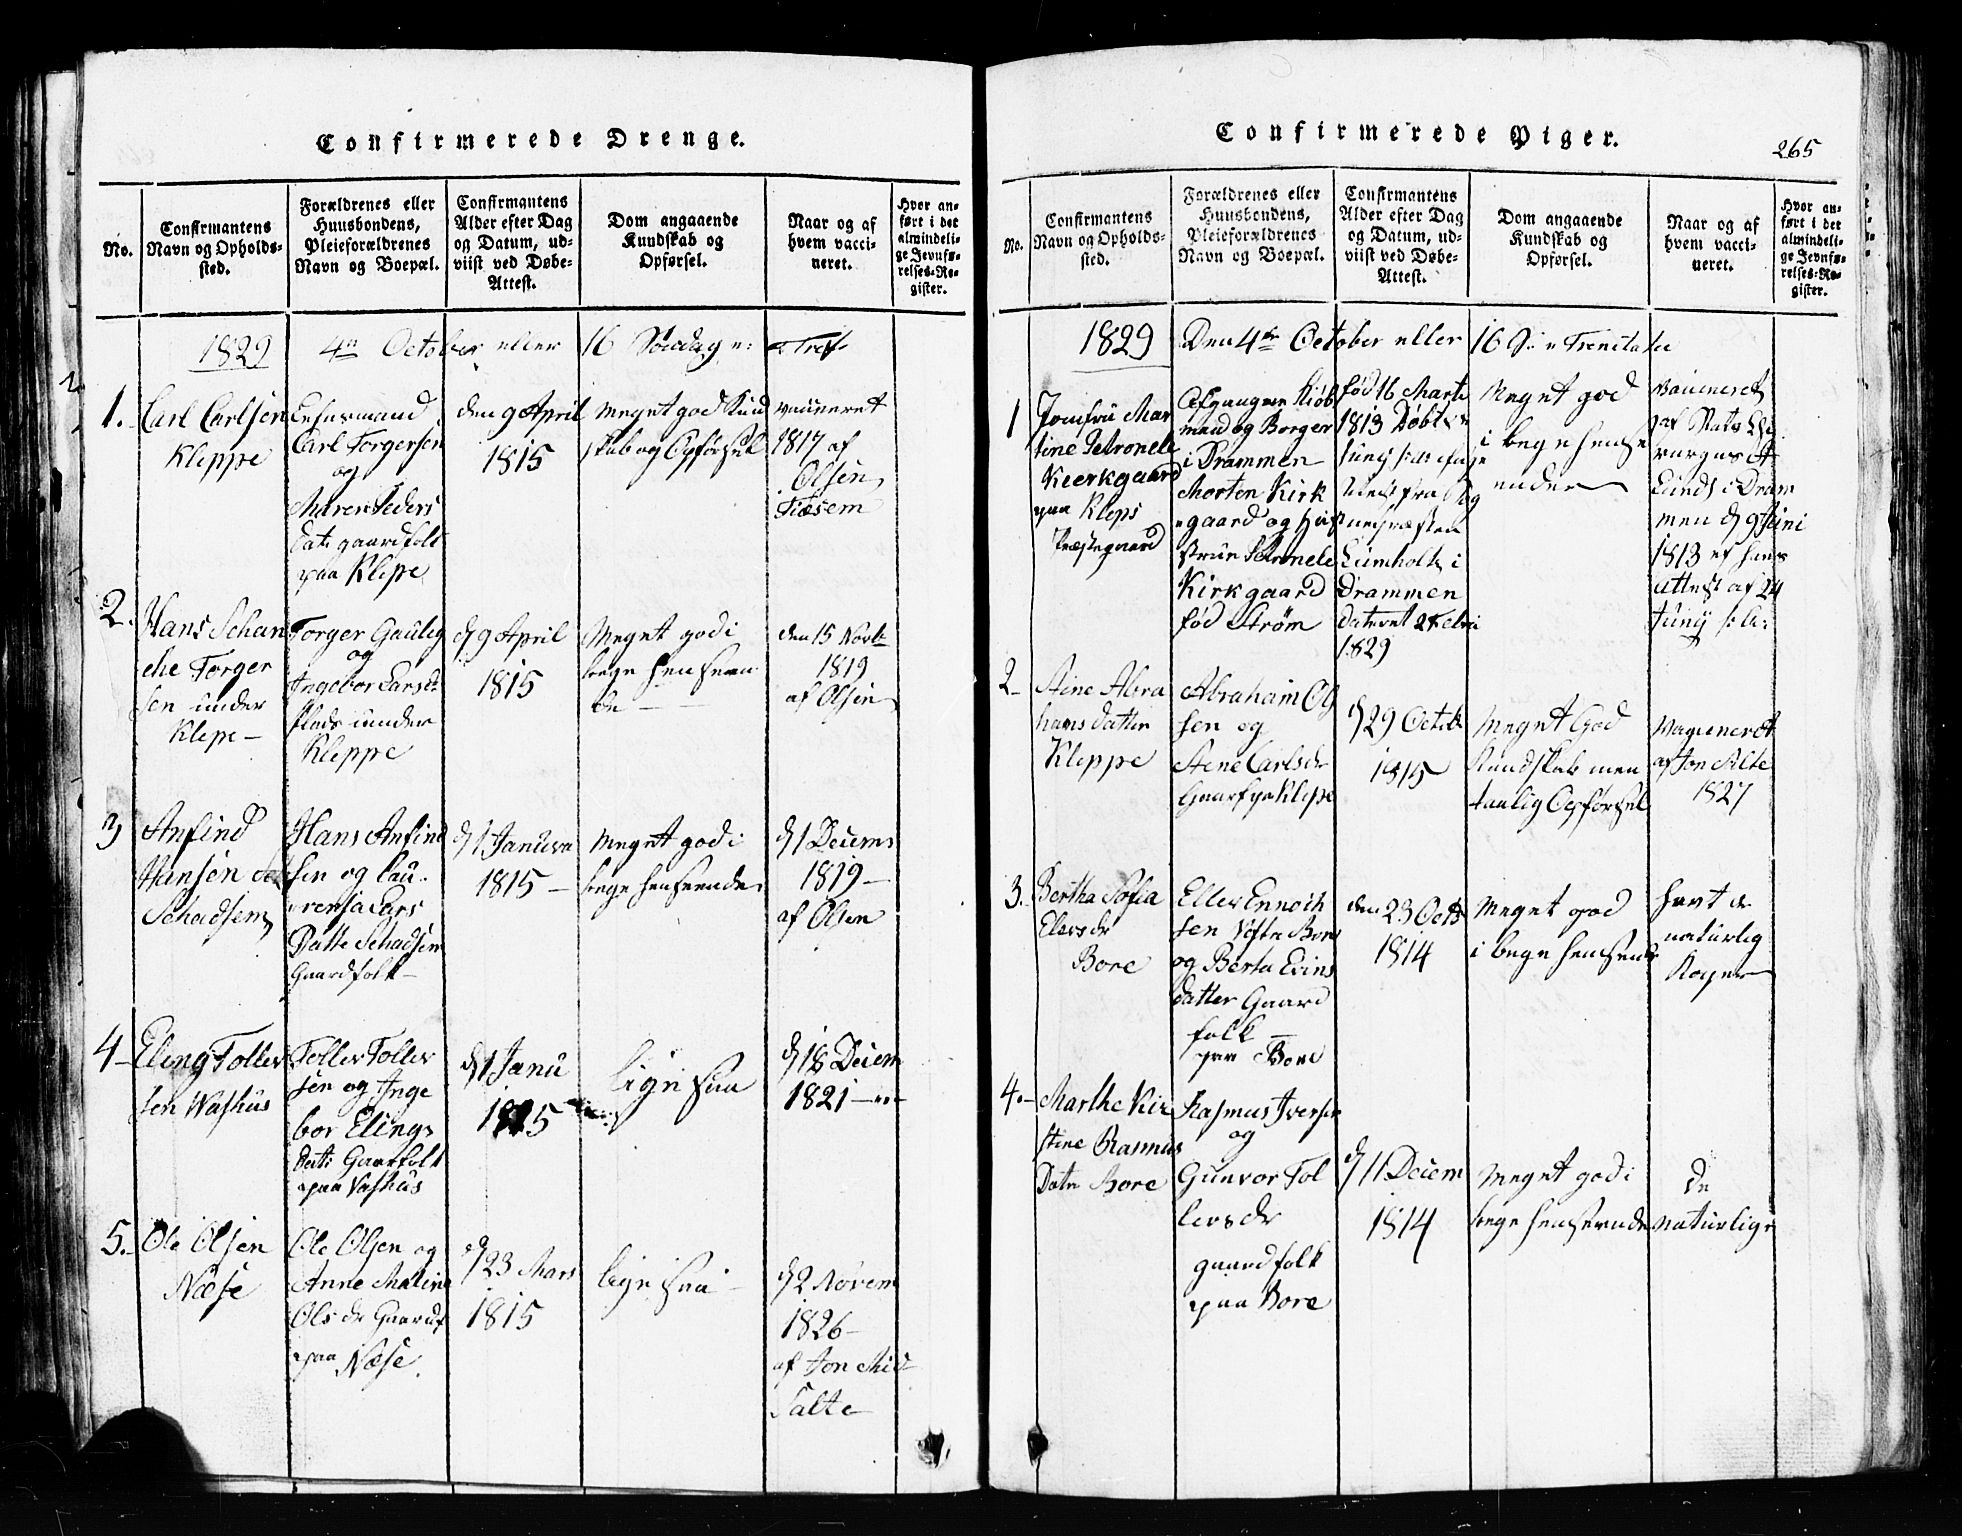 Confirmerede Drenge.
No.
Confirmantens
Navn og Opholds-
sted.
Forældrenes eller
Huusbondens,
Pleieforældrenes
Navn og Boepæl.
Confirmantens
Alder efter Dag
og Datum, ud-
viist ved Døbe-
Attest.
Dom angaaende
Kundskab og
Opførsel.
Naar og af
hvem vacci-
neret.
Hvor an-
ført i det
almindeli-
ge Jevnfø-
relses-Re-
gister.
1829 4de October eller 16 Søndag e: Tref.
1.
Carl Carlsen
Kleppe
Carl Torgersen
og
Maren Peders
Datt gaardfolk
paa Klepe
den 9 April
1815
Meget god Kund
skab og Opførsel
vaccineret
1817 af
Olsen
2.
Hans Schan
che Torger
sen under
Klepe -
Torger Gauleg
og
Ingebor Larsdr
plads under
Kleppe
d 9 April
1815
Meget god i
bege henseen
de -
den 15 Novb
1819
af Olsen
3
Anfind
Hansen
Schadsem
Hans Anfind
sen og Lau-
rensa Lars
Datte Schadsem
Gaardfolk -
d 1 Januva
1815 -
Meget god i
bege henseende
d 1 Decems
1819 -
af Olsen
4 -
Eleng Toller
sen Washus
Toller Toller
sen og Inge
bor Elings
datt Gaarfolk
paa Vashus
d 1 Janu
1815
lige saa
d 18 Decem
1821 -
5.-
Ole Olsen
Næse
Ole Olsen og
Anne Malina
Ols dr Gaardf
paa Næse.
d 23 Mars
1815
lige saa -
d 2 Novem
1826 -
af Jon
Salte
Confirmerede Piger.
265
No.
Confirmantens
Navn og Opholds-
sted.
Forældrenes eller
Huusbondens,
Pleieforældrenes
Navn og Boepæl.
Confirmantens
Alder efter Dag
og Datum, ud-
viist ved Døbe-
Attest.
Dom angaaende
Kundskab og
Opførsel.
Naar og af
hvem vacci-
neret.
Hvor an-
ført i det
almindeli-
ge Jevnfø-
relses-Re-
gister.
1829 Den 4de October eller 16 S: e Trenitatis
1
Jomfru Mar
tine Petronele
Kierkgaard
paa Kleps
Præstegaard
Afgangne Kiøb
mand og Borger
i Drammen
Morten Kirk
gaard og Hu
strue Petronele
Kirkgaard
fød Strøm
fød 16 Marti
1813 Døbt
Juny
Attest fra
Lumholtz i
Drammen
dateret
1829
Meget god
i bege hense
ender
Vaccineret
af
Lund i Dram
men d 9 Juni
1813 ef hans
attest af 24
Juny
2 -
Stine Abra
hams datter
Kleppe
Abraham Ol
sen og
Stene Carlsdr
Gaarf paa Klepe
d 29 Octob
1815
Meget God
Kundskab men
taalig Opførsel
Vacieneret
af Jon Salte
1827
3.
Bertha Sofia
Elersdr
Bore
Eller Ennoch
sen Vestre Bore
og Berta Evins
datter Gaard
folk -
paa Bore
den 23 Octb
1814
Meget god
i bege hensende
havt de
naturlig
Koper
4.-
Marthe Kir
stine Rasmus
Datr Bore
Rasmus Iversen
og
Gunvor Tol
lersdr
gaardfolk
paa Bore
d 11 Decem
1814
Meget god i
bege henseende
de
naturlige